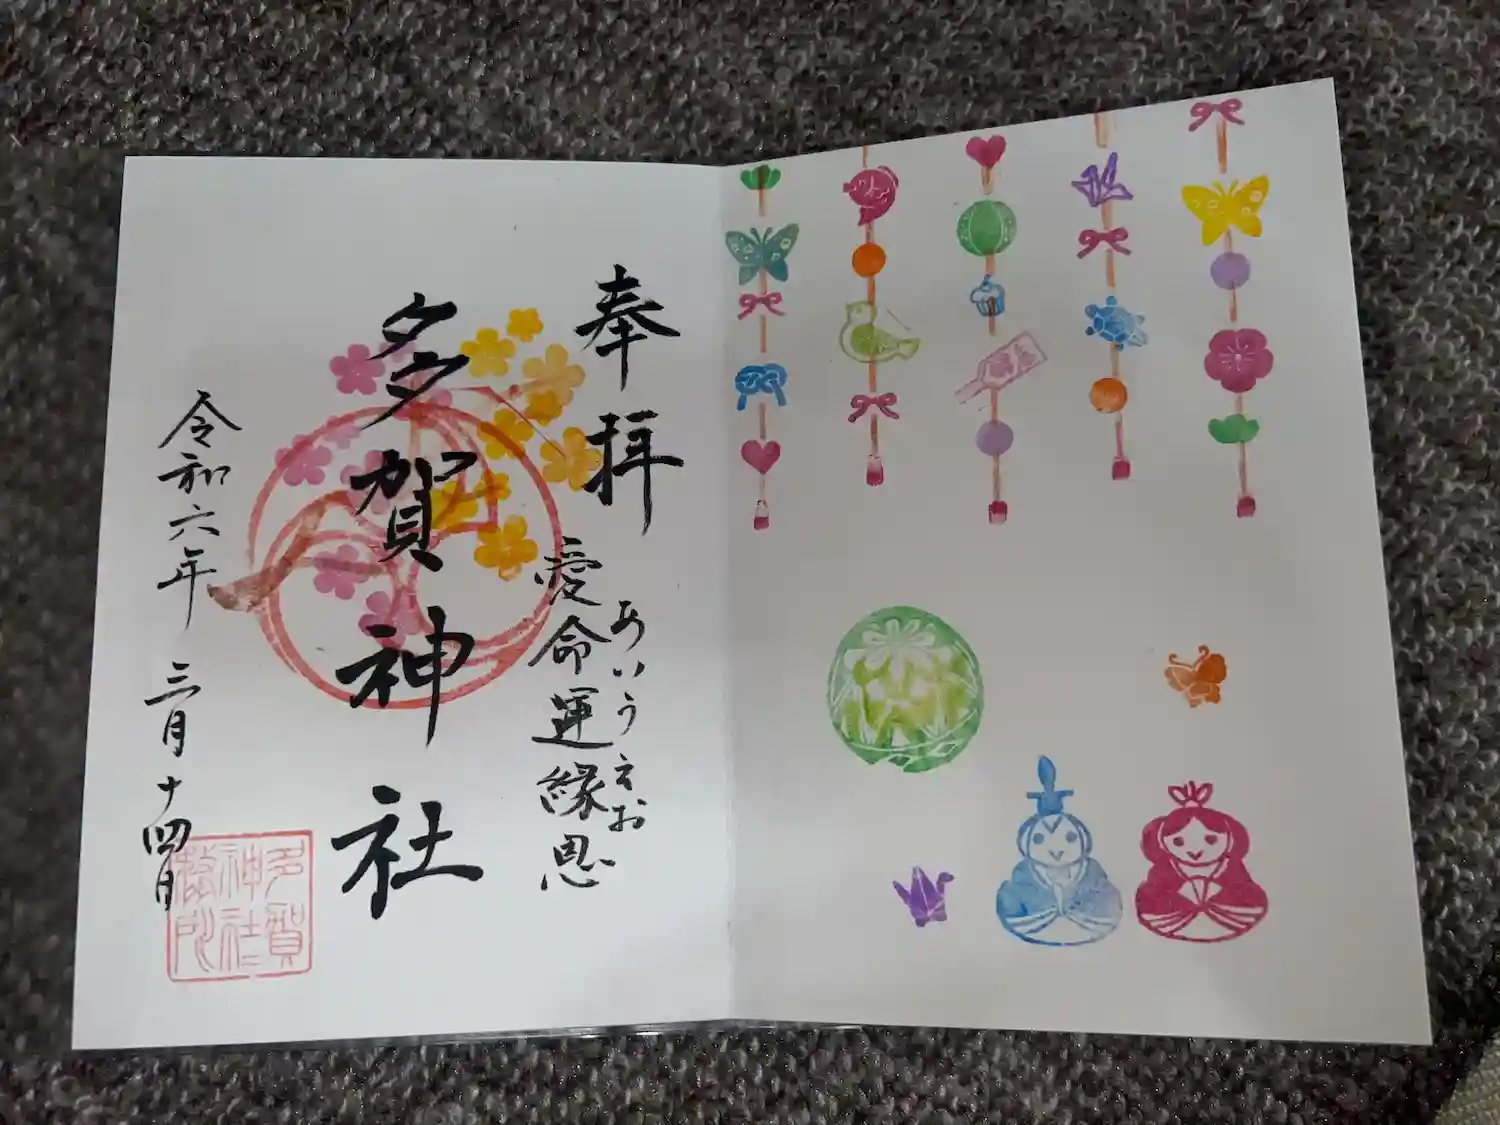 奉拝
あいうえお
愛命運縁恩
多賀神社
令和六年 三月十四日
多賀
神社